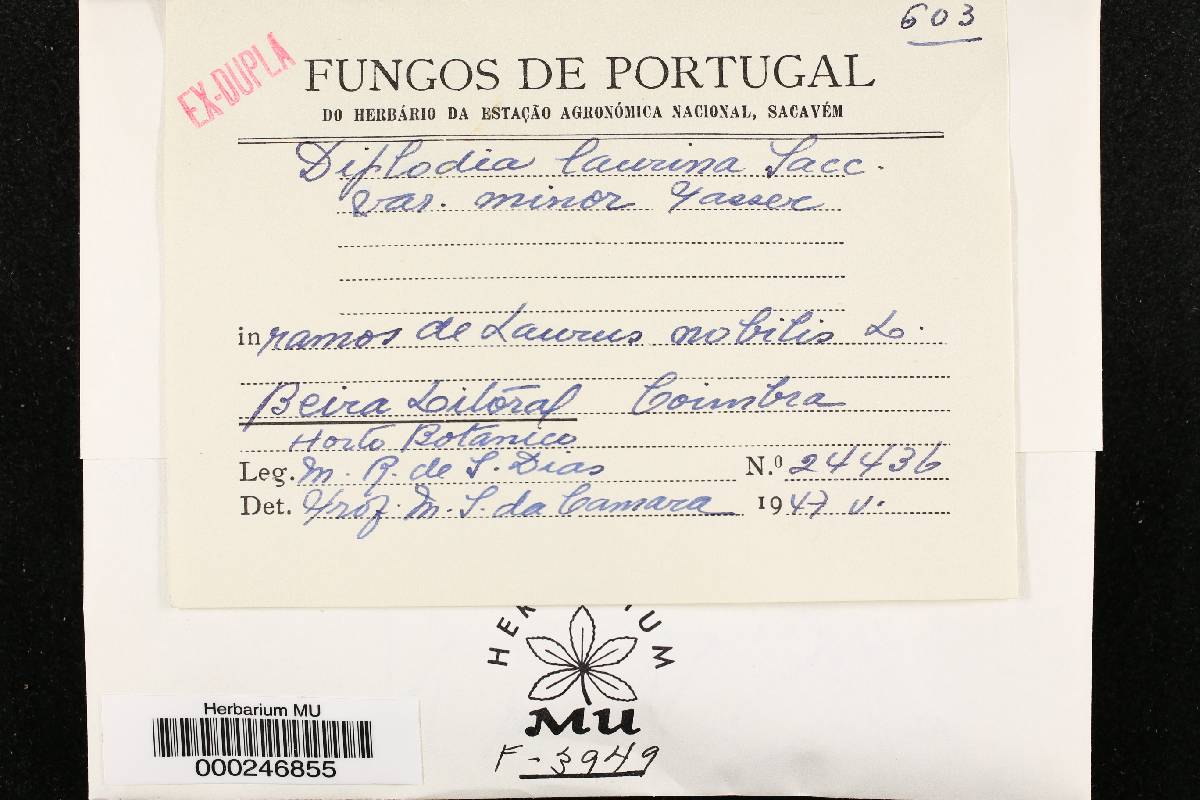 603
EX-DUPLA
FUNGOS DE PORTUGAL
DO HERBÁRIO DA ESTAÇÃO AGRONÓMICA NACIONAL, SACAVÉM
Diplodia laurina Sacc.
var. minor
in ramos de Laurus nobilis L.
Beira Litoral Coimbra
Horto Botanico
Leg. M. R. de S. Dias N.º 24436
Det. Prof. M. S. da Camara 1947 V.
MU
F-3949
Herbarium MU
000246855